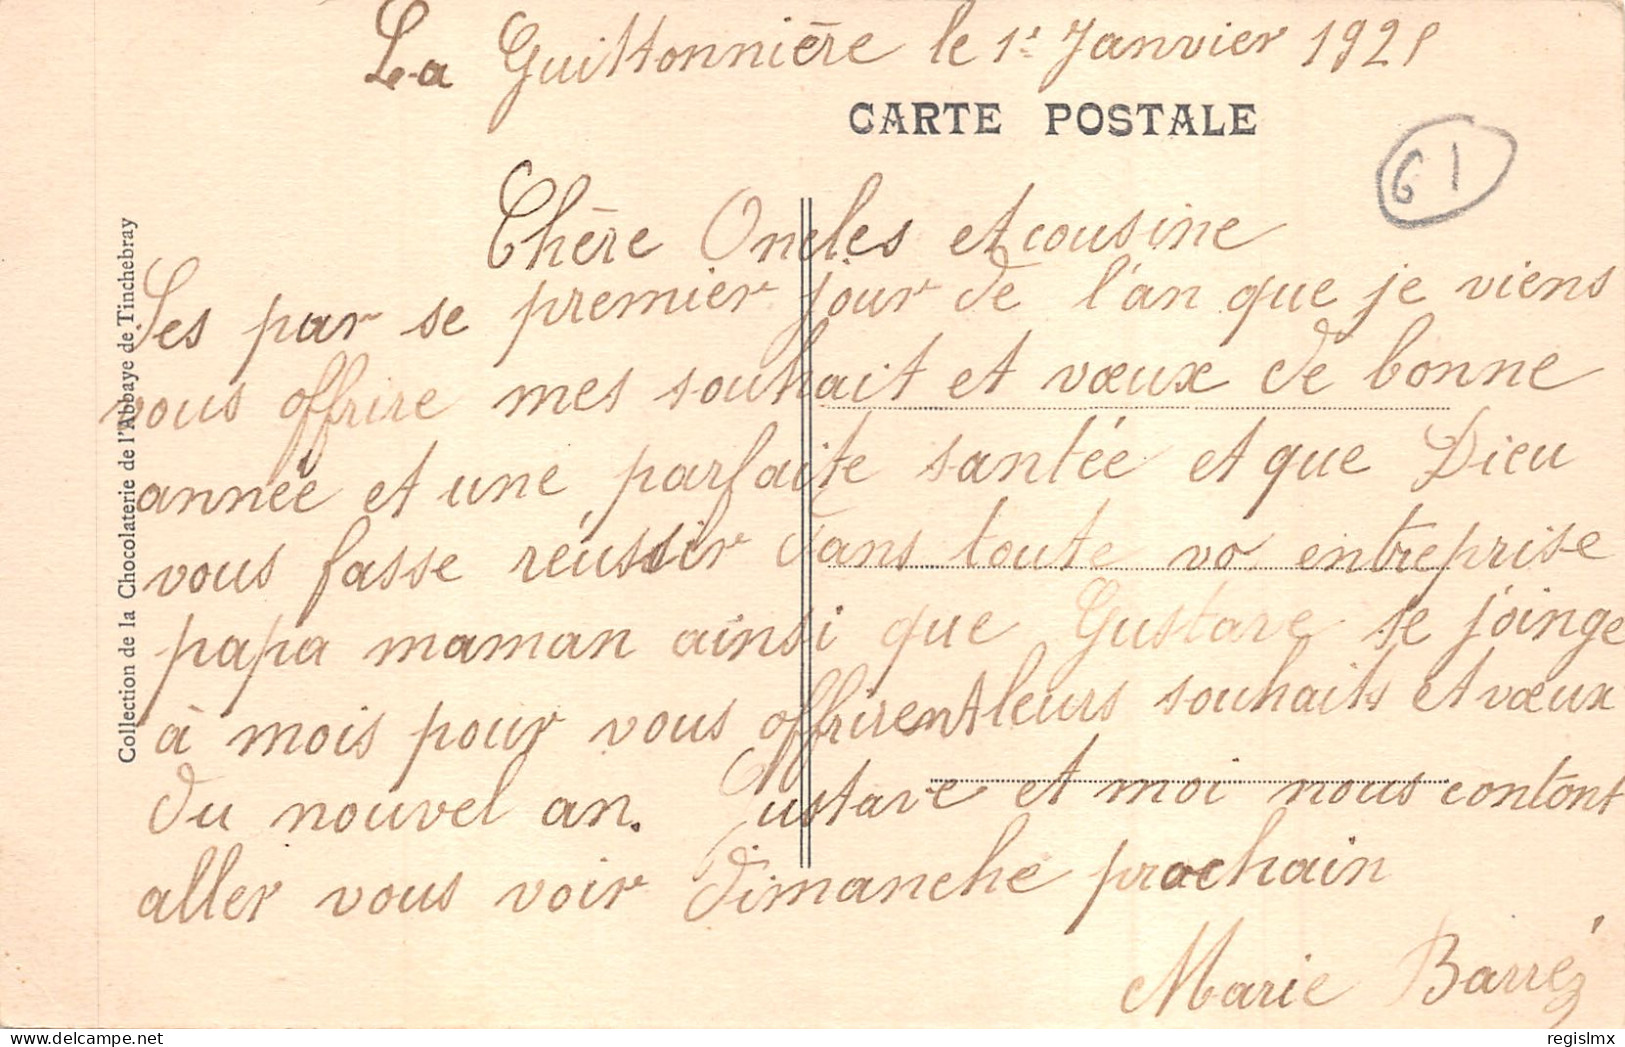 La Guittonnière le 1r Janvier 1921
CARTE POSTALE
61
Chère Oncles et cousine
Ses par se premier jour de l'an que je viens
vous offrire mes souhait et vœux de bonne
année et une parfaite santée et que Dieu
vous fasse réussir dans toute vo entreprise
papa maman ainsi que Gustave se joinge
à mois pour vous offrirent leurs souhaits et vœux
du nouvel an. Gustave et moi nous contont
aller vous voir dimanche prochain
Marie Barré
Collection de la Chocolaterie de l'Abbaye de Tinchebray
regislmx